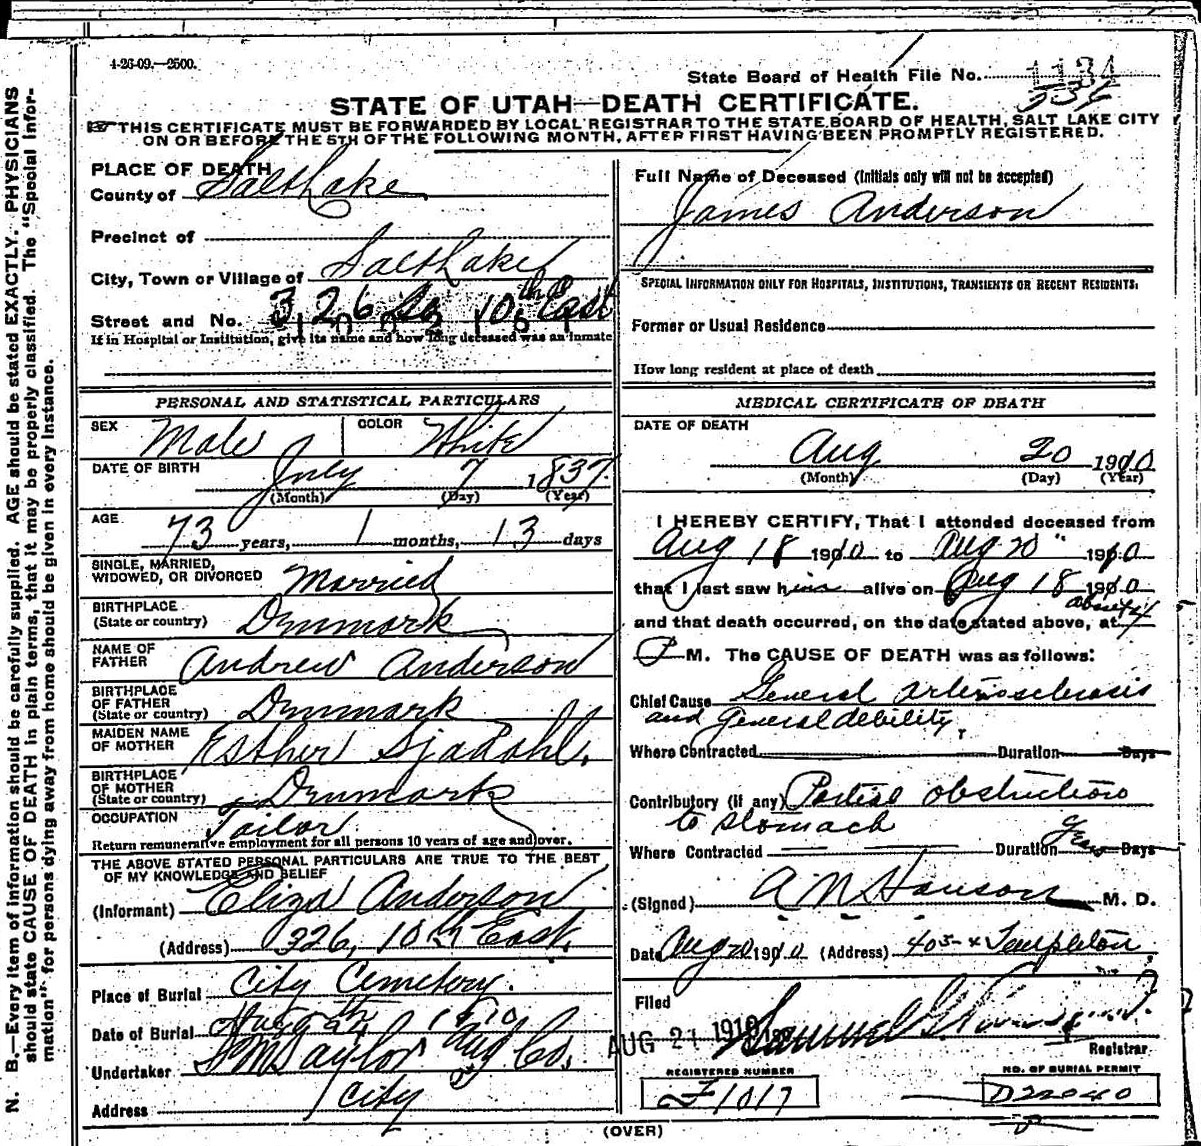 4-26-09.—2500.
State Board of Health File No. 1134
536
STATE OF UTAH—DEATH CERTIFICATE.
THIS CERTIFICATE MUST BE FORWARDED BY LOCAL REGISTRAR TO THE STATE BOARD OF HEALTH, SALT LAKE CITY
ON OR BEFORE THE 5TH OF THE FOLLOWING MONTH, AFTER FIRST HAVING BEEN PROMPTLY REGISTERED.
PLACE OF DEATH
County of Salt Lake
Precinct of
City, Town or Village of Salt Lake
Street and No. 326 So 10th East
If in Hospital or Institution, give its name and how long deceased was an inmate
Full Name of Deceased (Initials only will not be accepted)
James Anderson
SPECIAL INFORMATION ONLY FOR HOSPITALS, INSTITUTIONS, TRANSIENTS OR RECENT RESIDENTS:
Former or Usual Residence
How long resident at place of death
PERSONAL AND STATISTICAL PARTICULARS
SEX Male COLOR White
DATE OF BIRTH July 7 1837
(Month) (Day) (Year)
AGE 73 years, 1 months, 13 days
SINGLE, MARRIED,
WIDOWED, OR DIVORCED Married
BIRTHPLACE
(State or country) Denmark
NAME OF
FATHER Andrew Anderson
BIRTHPLACE
OF FATHER
(State or country) Denmark
MAIDEN NAME
OF MOTHER Esther Sjadahl.
BIRTHPLACE
OF MOTHER
(State or country) Denmark
OCCUPATION Tailor
Return remunerative employment for all persons 10 years of age and over.
THE ABOVE STATED PERSONAL PARTICULARS ARE TRUE TO THE BEST
OF MY KNOWLEDGE AND BELIEF
(Informant) Eliza Anderson
(Address) 326, 10th East.
Place of Burial City Cemetery.
Date of Burial Aug 24 1910
Undertaker S M Taylor Co.
Address City
MEDICAL CERTIFICATE OF DEATH
DATE OF DEATH
Aug 20 1910
(Month) (Day) (Year)
I HEREBY CERTIFY, That I attended deceased from
Aug 18 1910 to Aug 20" 1910
that I last saw him alive on Aug 18 1910
and that death occurred, on the date stated above, at about 4
P M. The CAUSE OF DEATH was as follows:
Chief Cause General arteriosclerosis
and General debility,
Where Contracted Duration Days
Contributory (if any) Partial obstruction
to stomach
Where Contracted Duration Years Days
(Signed) A N Hanson M. D.
Date Aug 20 1910 (Address) 405-x Templeton
Filed
AUG 21 1910 Samuel G.
Registrar
REGISTERED NUMBER
F1017
NO. OF BURIAL PERMIT
D22040
(OVER)
N. B.—Every item of information should be carefully supplied. AGE should be stated EXACTLY. PHYSICIANS
should state CAUSE OF DEATH in plain terms, that it may be properly classified. The "Special Infor-
mation" for persons dying away from home should be given in every instance.